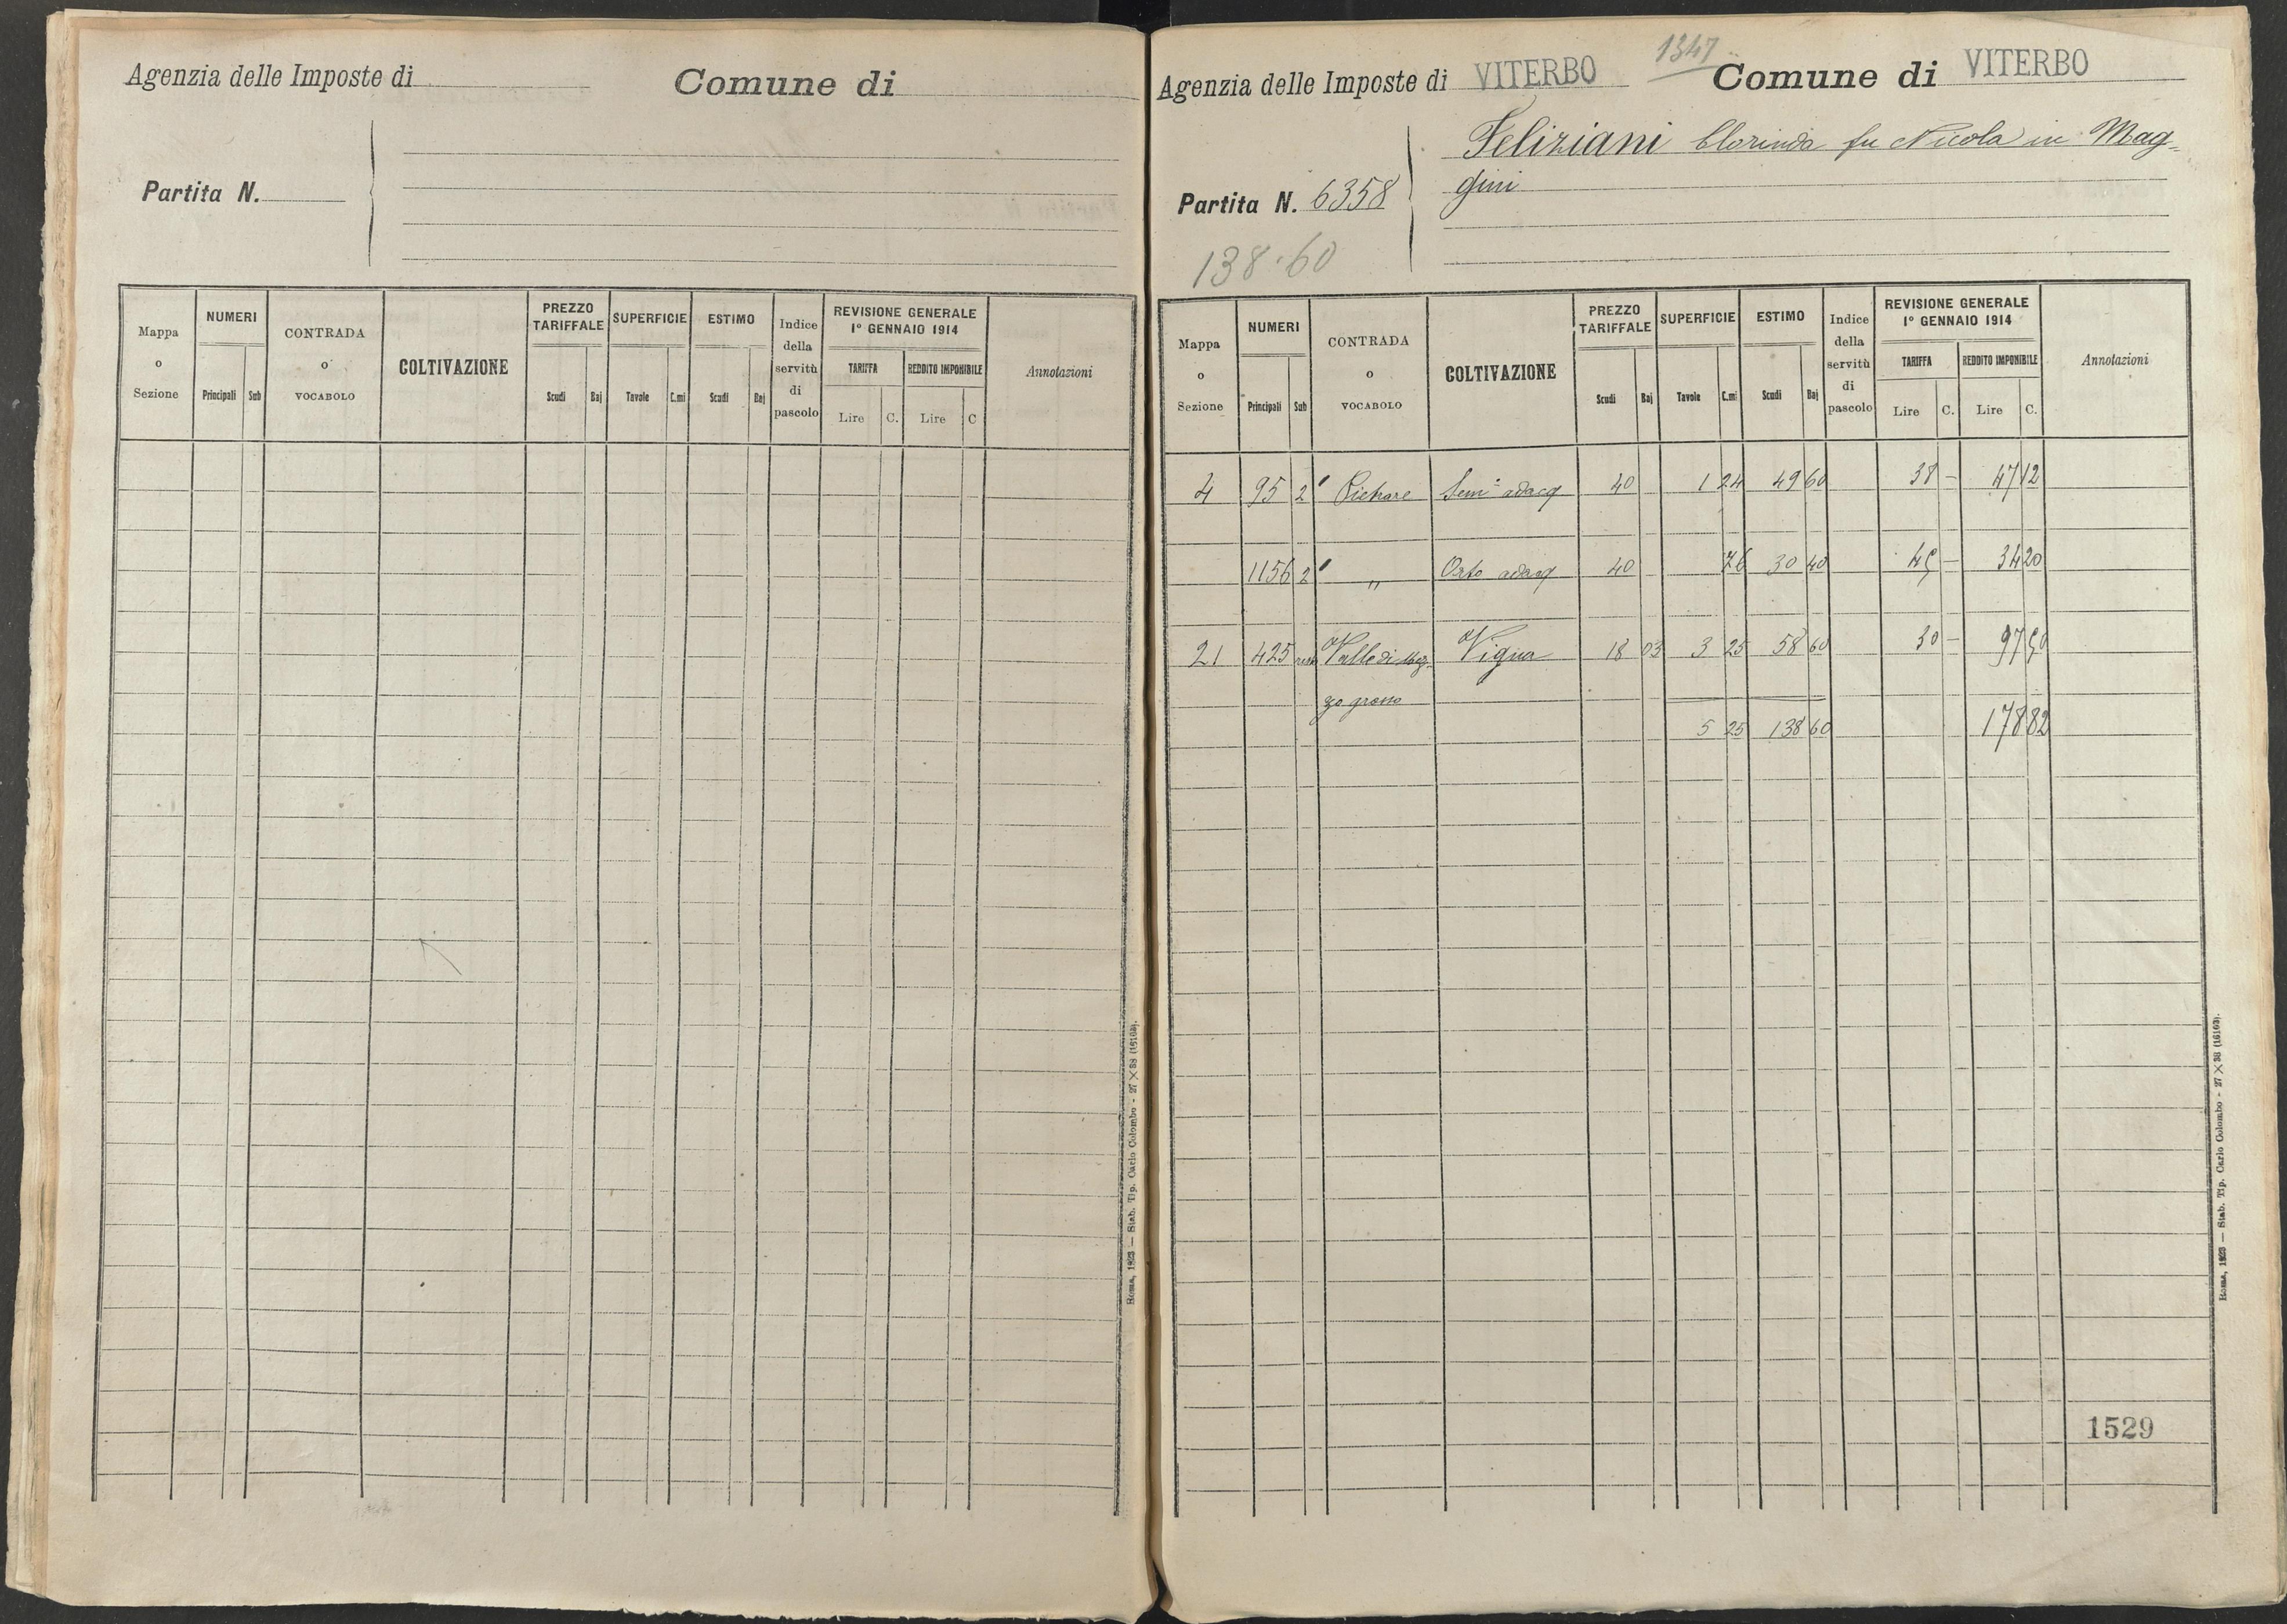 Agenzia delle Imposte di
Comune di
Partita N.
Mappa o Sezione
NUMERI
Principali Sub
CONTRADA o VOCABOLO
COLTIVAZIONE
PREZZO TARIFFALE
Scudi Baj
SUPERFICIE
Tavole C.mi
ESTIMO
Scudi Baj
Indice della servitù di pascolo
REVISIONE GENERALE
1° GENNAIO 1914
TARIFFA REDDITO IMPONIBILE
Lire C. Lire C
Annotazioni
Roma, 1923 — Stab. Tip. Carlo Colombo - 27 × 38 (16163).
1347
Agenzia delle Imposte di VITERBO Comune di VITERBO
Feliziani Clorinda fu Nicola in Mag-
gini
Partita N. 6358
138.60
Mappa o Sezione
NUMERI
Principali Sub
CONTRADA o VOCABOLO
COLTIVAZIONE
PREZZO TARIFFALE
Scudi Baj
SUPERFICIE
Tavole C.mi
ESTIMO
Scudi Baj
Indice della servitù di pascolo
REVISIONE GENERALE
1° GENNAIO 1914
TARIFFA REDDITO IMPONIBILE
Lire C. Lire C.
Annotazioni
4 95 2 Sem° adacq 40 1 24 49 60 38 - 47 12
1156 2 " Orto adacq 40 76 30 40 45 - 34 20
21 425 Valle di Moz- Vigna 18 03 3 25 58 60 30 - 97 50
zo grosso
5 25 138 60 178 82
1529
Roma, 1923 — Stab. Tip. Carlo Colombo - 27 × 38 (16163).